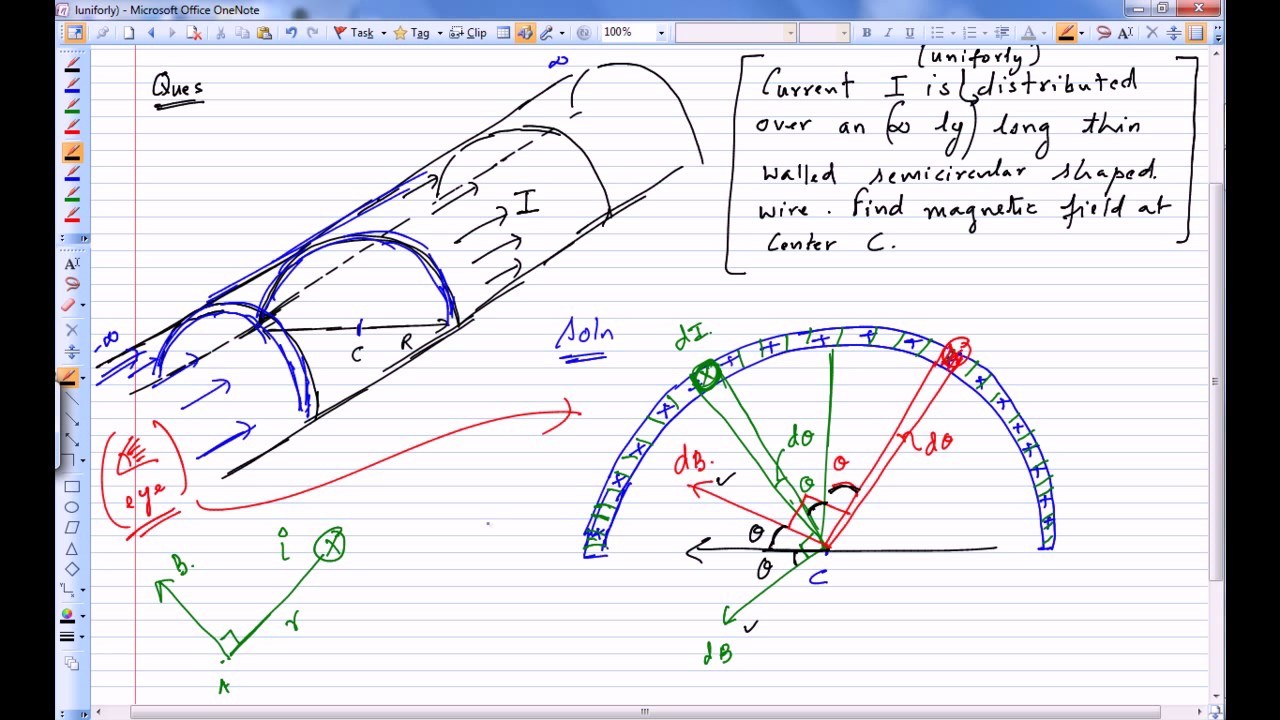 luniforly) - Microsoft Office OneNote
Task
Tag
Clip
100%
B I U
Ques
∞
(uniforly)
Current I is distributed
over an (∞ ly) long thin
walled semicircular shaped.
wire. Find magnetic field at
Center C.
I
-∞
C R
Soln
dI.
dθ
θ
θ
dθ
dB.
θ
θ
C
dB
eye
i
B.
r
A